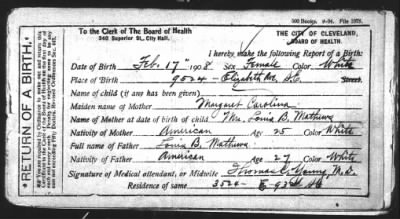 300 Books, 9-04. File 2878.
To the Clerk of The Board of Health
340 Superior St., City Hall.
THE CITY OF CLEVELAND,
BOARD OF HEALTH.
I hereby make the following Report of a Birth:
Date of Birth Feb. 17" 1908 Sex, Female Color, White
Place of Birth 9024 Elizabeth Av. S.E. Street.
Name of child (if any has been given)
Maiden name of Mother Margaret Carolina
Name of Mother at date of birth of child Mrs. Louis B. Mathews
Nativity of Mother American Age 25 Color White
Full name of Father Louis B. Mathews
Nativity of Father American Age 27 Color White
Signature of Medical attendant, or Midwife Thomas C. Young, M.D.
Residence of same 3524 E 93rd St
RETURN OF A BIRTH.